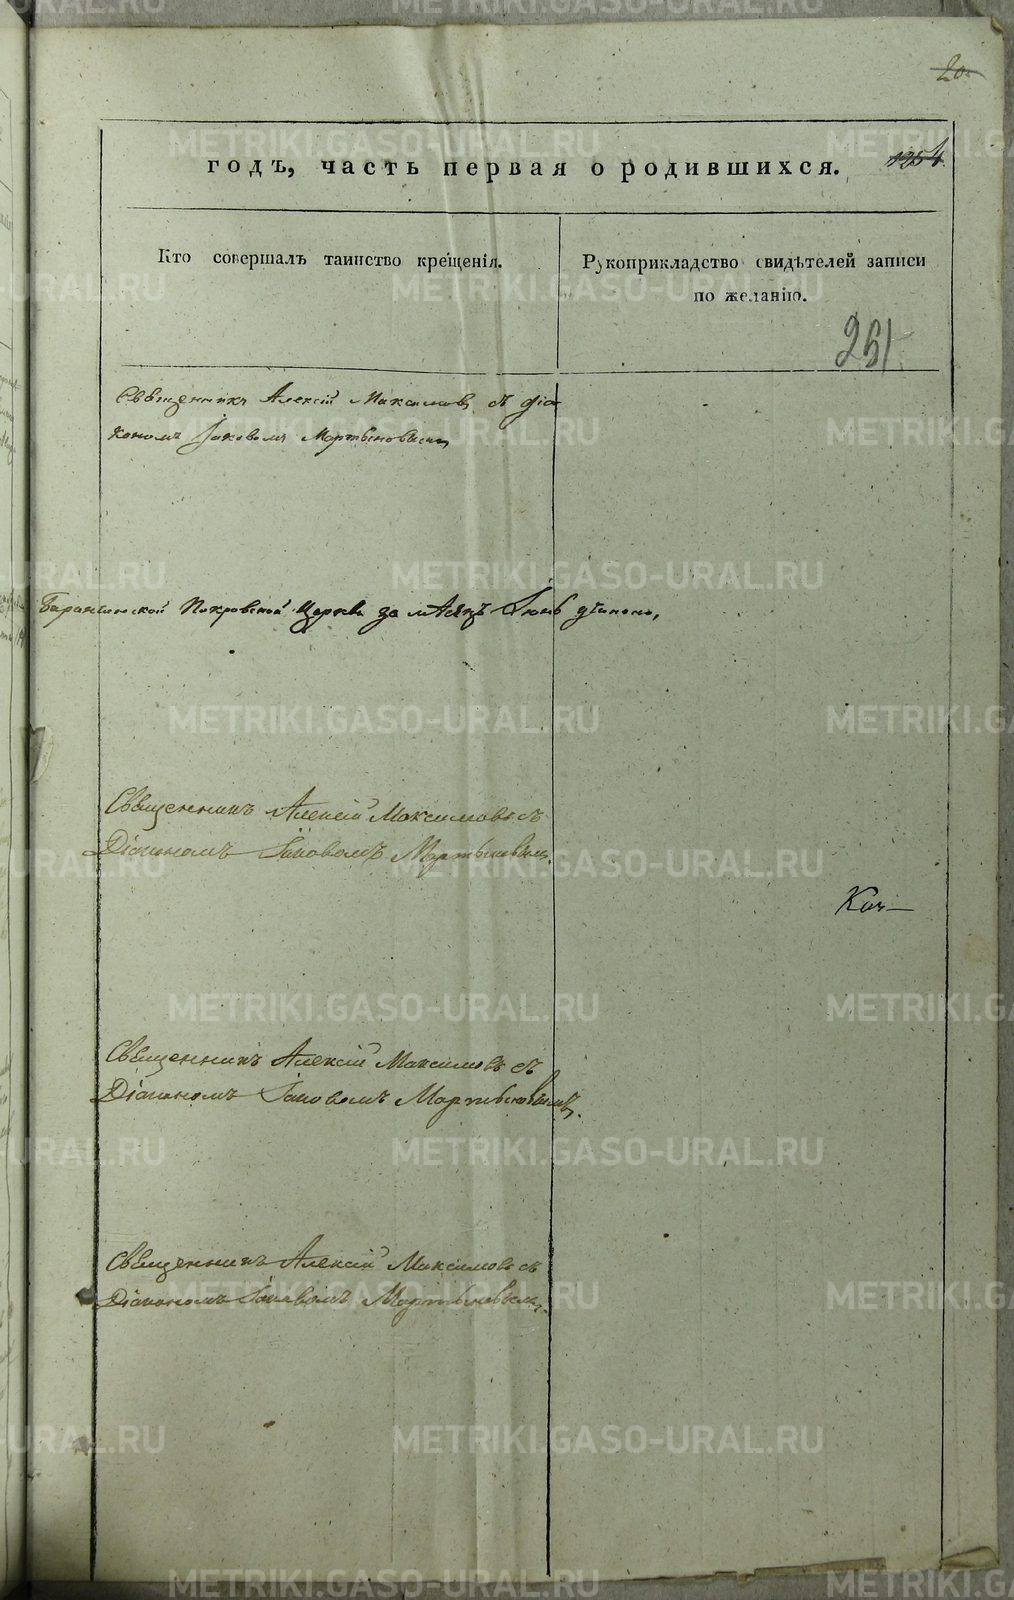 20
годъ, часть первая о родившихся. 1254.
Кто совершалъ таинство крещенія.
Рукоприкладство свидѣтелей записи
по желанію.
251
Священникъ Алексій Максимовъ съ діа
кономъ Іаковомъ Мартыновымъ
Баранчинской Покровской Церкви за мѣсяцъ Іюнь
Священникъ Алексій Максимовъ съ
Діакономъ Іаковомъ Мартыновымъ.
Священникъ Алексій Максимовъ съ
Діакономъ Іаковомъ Мартыновымъ.
Священникъ Алексій Максимовъ съ
Діакономъ Іаковомъ Мартыновымъ.
METRIKI.GASO-URAL.RU